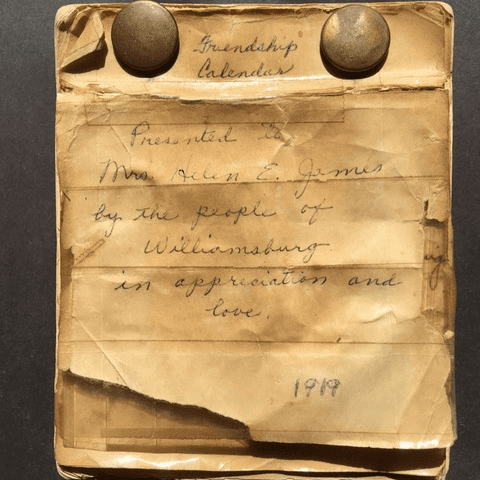 Friendship
Calendar
Presented to
Mrs. Helen E. James
by the people of
Williamsburg
in appreciation and
love.
1919